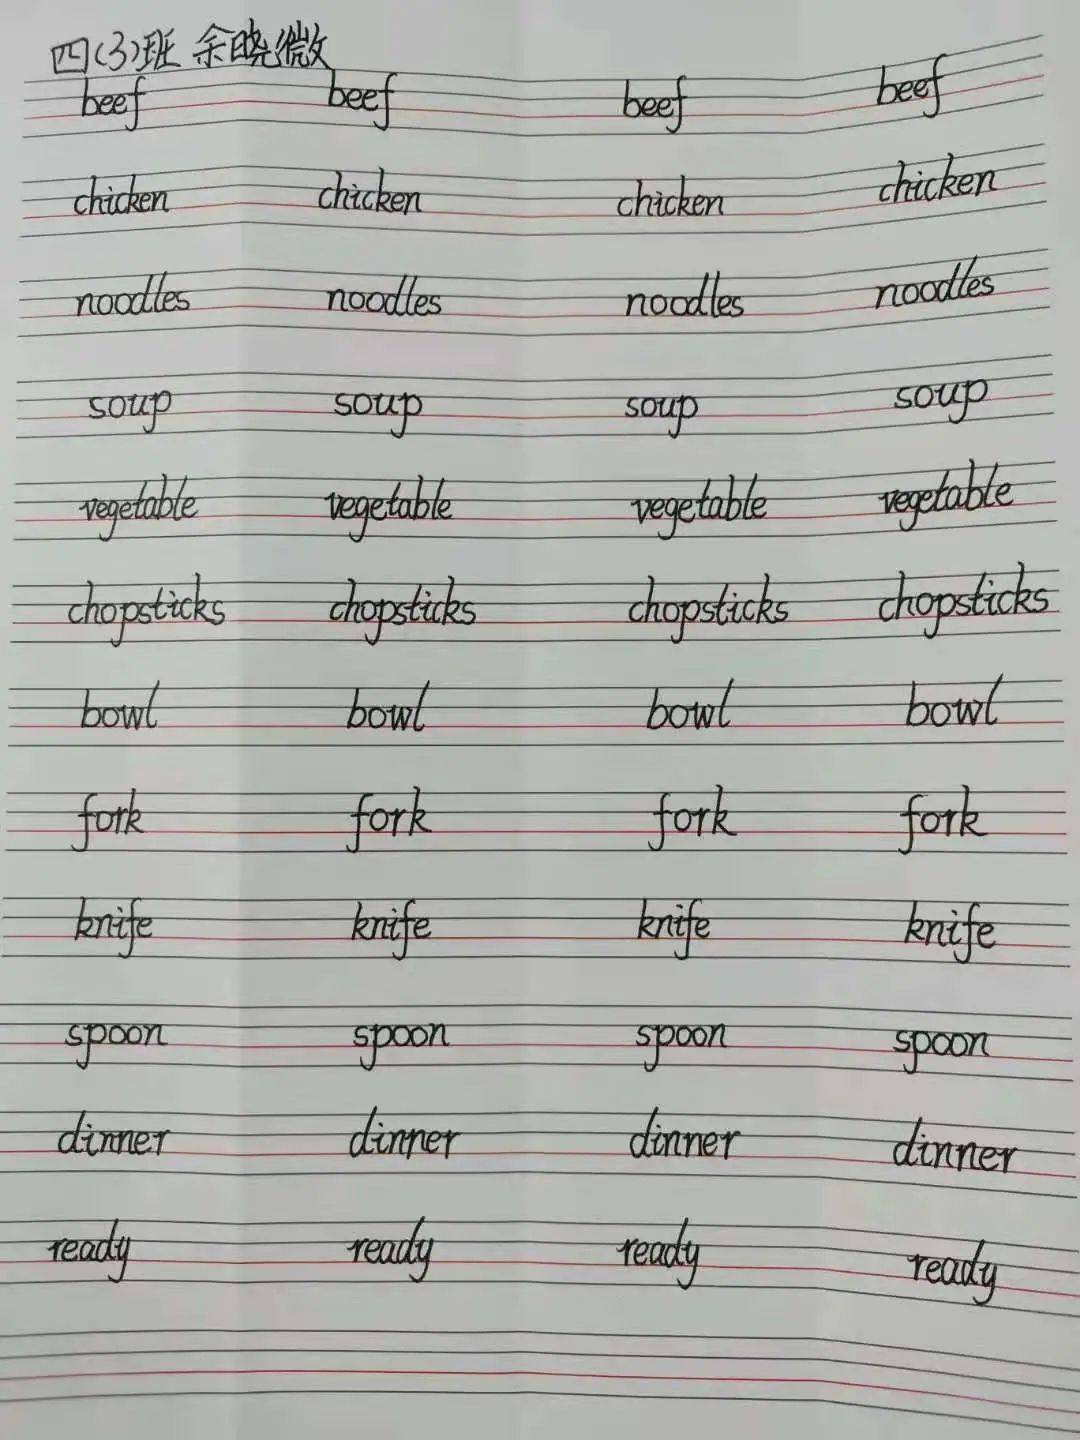 四(3)班 余晓微
beef beef beef beef
chicken chicken chicken chicken
noodles noodles noodles noodles
soup soup soup soup
vegetable vegetable vegetable vegetable
chopsticks chopsticks chopsticks chopsticks
bowl bowl bowl bowl
fork fork fork fork
knife knife knife knife
spoon spoon spoon spoon
dinner dinner dinner dinner
ready ready ready ready